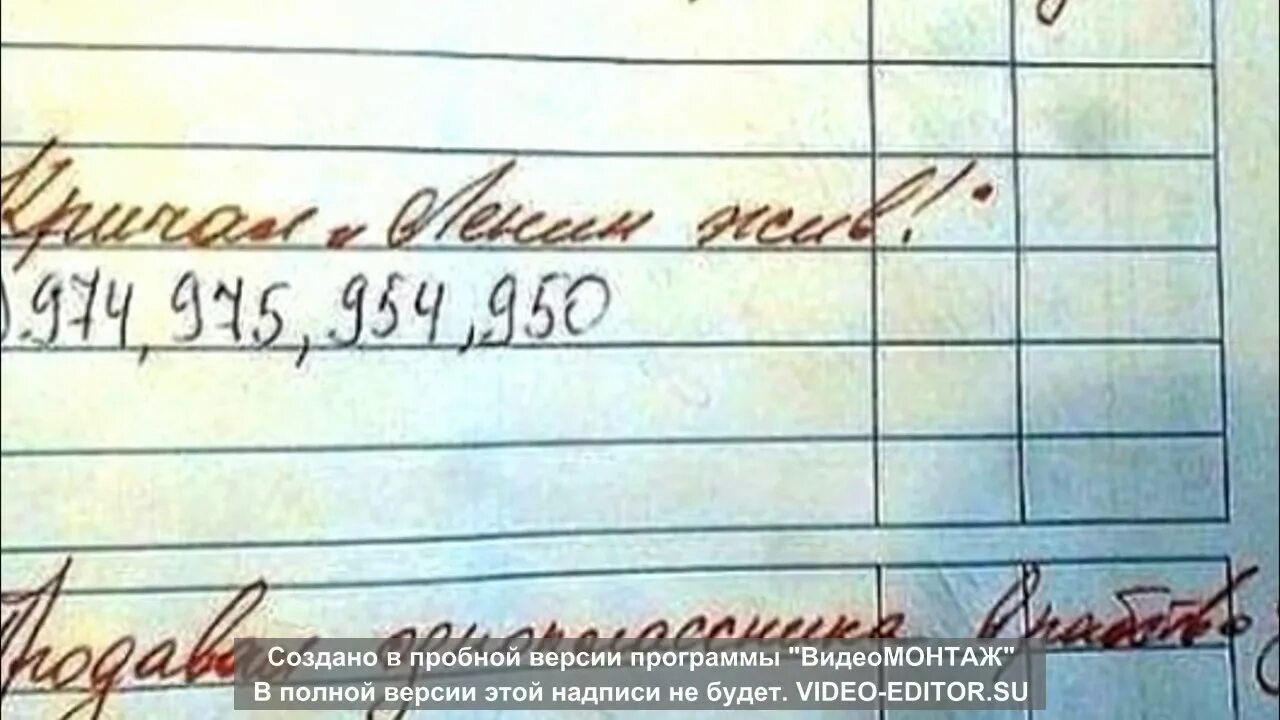 Кричал „Ленин жив!"
).974, 975, 954, 950
Продавал одноклассника в рабство
Создано в пробной версии программы "ВидеоМОНТАЖ"
В полной версии этой надписи не будет. VIDEO-EDITOR.SU